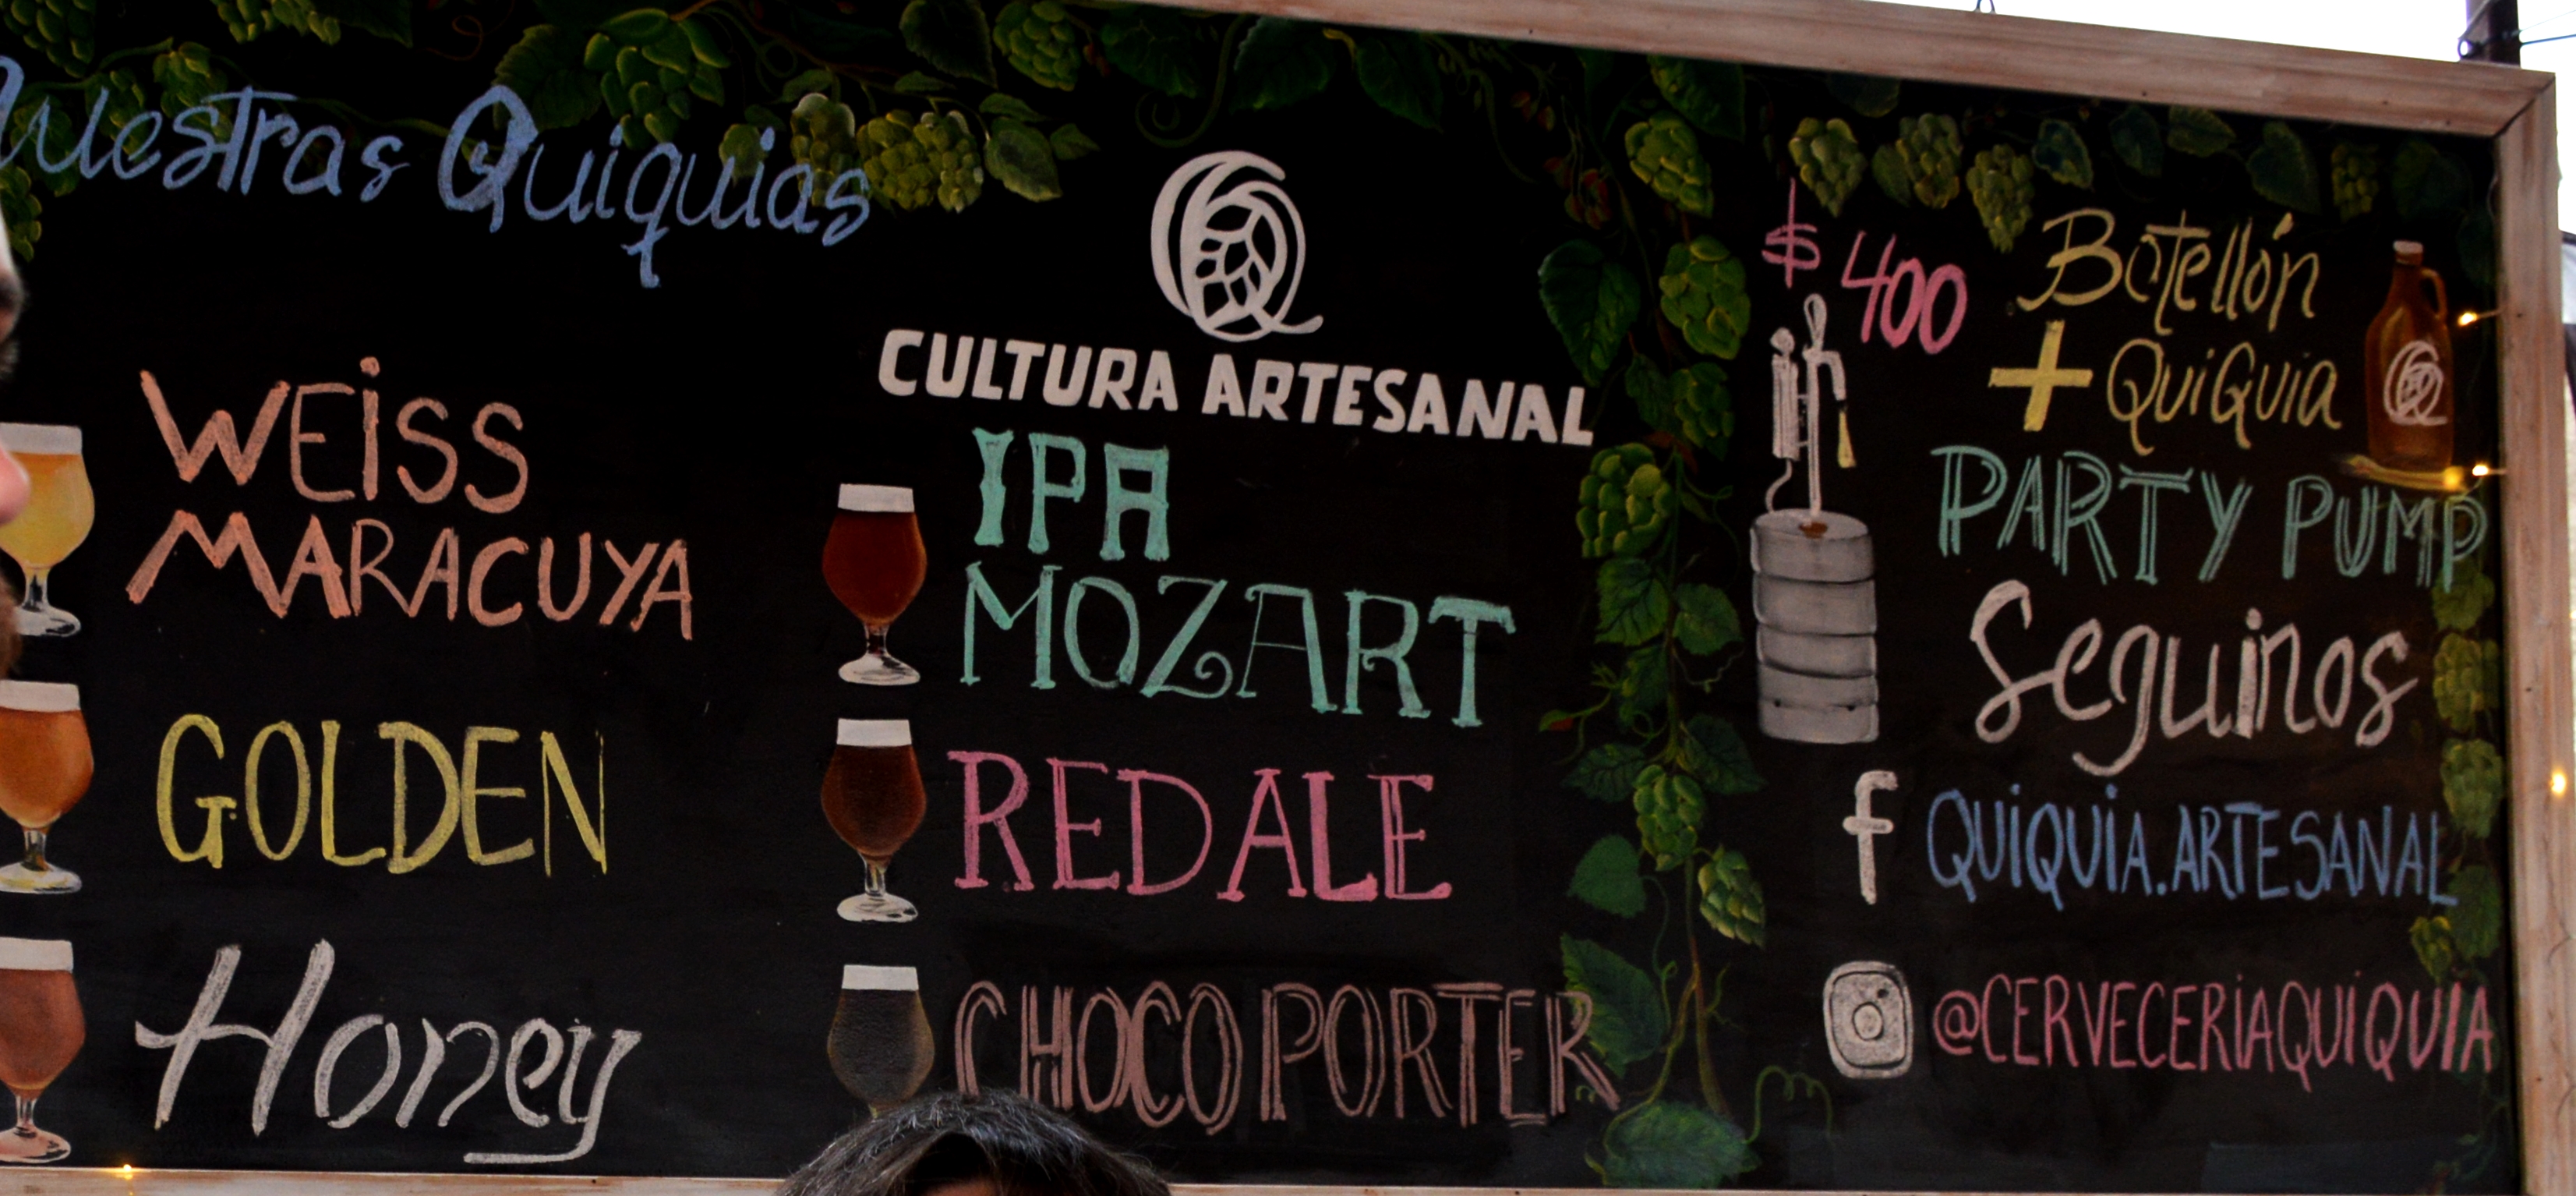 Nuestras Quiquias
WEISS
MARACUYA
GOLDEN
Honey
CULTURA ARTESANAL
IPA
MOZART
RED ALE
CHOCO PORTER
$400
Botellón
+ QuiQuia
PARTY PUMP
Seguinos
f QUIQUIA.ARTESANAL
@CERVECERIAQUIQUIA